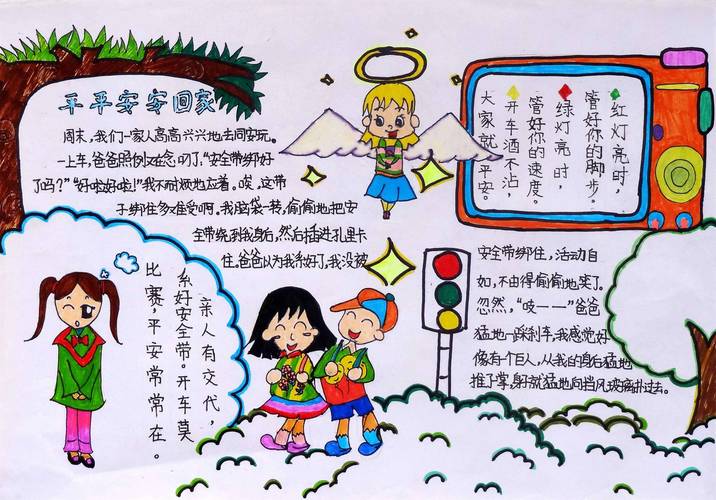 平平安安回家
周末，我们一家人高高兴兴地去同安玩。
一上车，爸爸照例又在念叨了，“安全带绑好
了吗？”“好啦好啦！”我不耐烦地应着。唉，这带
子绑住多难受啊。我脑袋一转，偷偷地把安
全带绕到我身后，然后插进孔里卡
住。爸爸以为我系好了，我没被
安全带绑住，活动自
如，不由得偷偷地笑了。
忽然，“吱——”爸爸
猛地一踩刹车，我感觉好
像有个巨人，从我的身后猛地
推了掌，身就猛地向挡风玻璃扑过去。
红灯亮时，
管好你的脚步。
绿灯亮时，
管好你的速度。
开车酒不沾，
大家就平安。
亲人有交代，
系好安全带。开车莫
比赛，平安常常在。